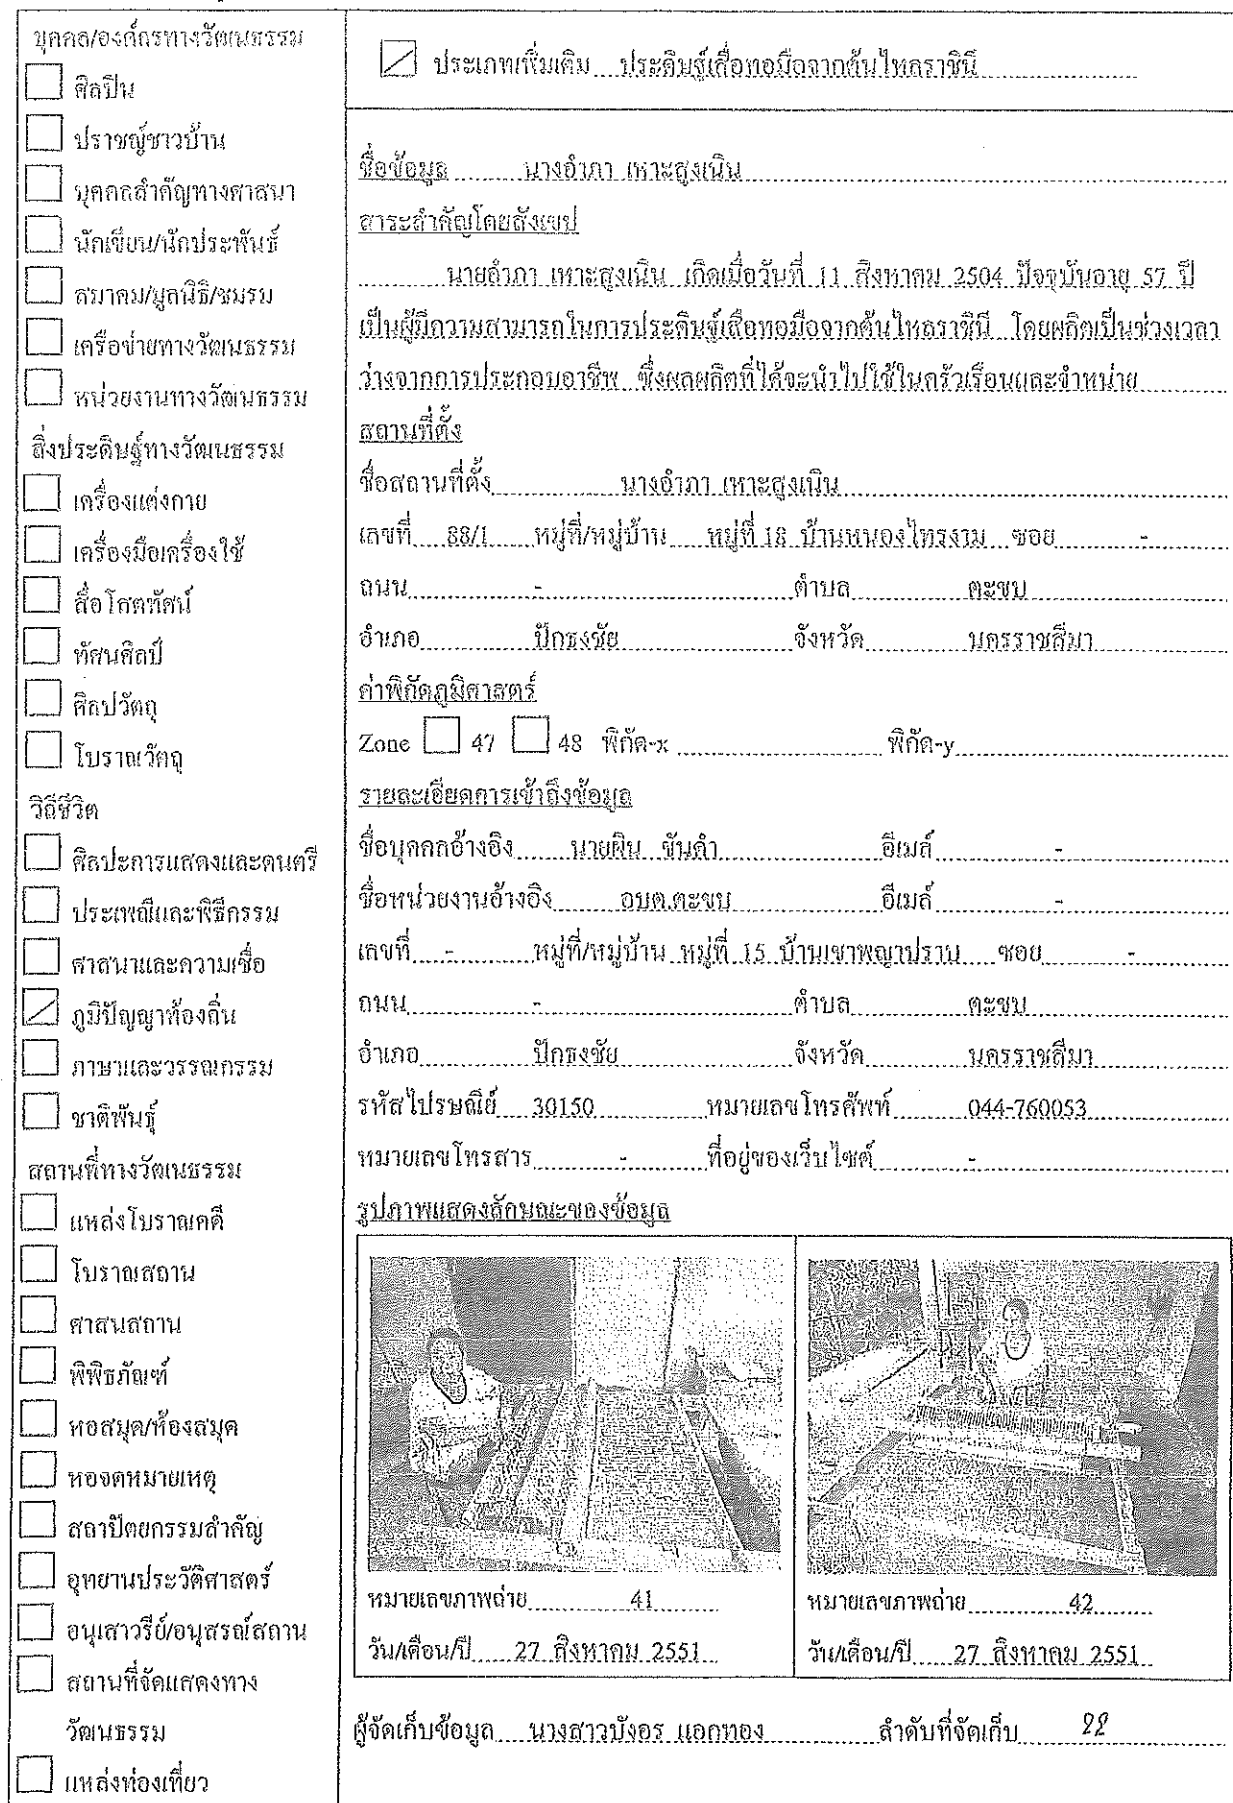 บุคคล/องค์กรทางวัฒนธรรม
ศิลปิน
ปราชญ์ชาวบ้าน
บุคคลสำคัญทางศาสนา
นักเขียน/นักประพันธ์
สมาคม/มูลนิธิ/ชมรม
เครือข่ายทางวัฒนธรรม
หน่วยงานทางวัฒนธรรม
สิ่งประดิษฐ์ทางวัฒนธรรม
เครื่องแต่งกาย
เครื่องมือเครื่องใช้
สื่อโสตทัศน์
ทัศนศิลป์
ศิลปวัตถุ
โบราณวัตถุ
วิถีชีวิต
ศิลปะการแสดงและดนตรี
ประเพณีและพิธีกรรม
ศาสนาและความเชื่อ
ภูมิปัญญาท้องถิ่น
ภาษาและวรรณกรรม
ชาติพันธุ์
สถานที่ทางวัฒนธรรม
แหล่งโบราณคดี
โบราณสถาน
ศาสนสถาน
พิพิธภัณฑ์
หอสมุด/ห้องสมุด
หอจดหมายเหตุ
สถาปัตยกรรมสำคัญ
อุทยานประวัติศาสตร์
อนุเสาวรีย์/อนุสรณ์สถาน
สถานที่จัดแสดงทาง
วัฒนธรรม
แหล่งท่องเที่ยว
ประเภทเพิ่มเติม ประดิษฐ์เสื่อทอมือจากต้นไหลราชินี
ชื่อข้อมูล นางอำภา เหาะสูงเนิน
สาระสำคัญโดยสังเขป
นายอำภา เหาะสูงเนิน เกิดเมื่อวันที่ 11 สิงหาคม 2504 ปัจจุบันอายุ 57 ปี
เป็นผู้มีความสามารถในการประดิษฐ์เสื่อทอมือจากต้นไหลราชินี โดยผลิตเป็นช่วงเวลา
ว่างจากการประกอบอาชีพ ซึ่งผลผลิตที่ได้จะนำไปใช้ในครัวเรือนและจำหน่าย
สถานที่ตั้ง
ชื่อสถานที่ตั้ง นางอำภา เหาะสูงเนิน
เลขที่ 88/1 หมู่ที่/หมู่บ้าน หมู่ที่ 18 บ้านหนองไทรงาม ซอย -
ถนน - ตำบล ตะขบ
อำเภอ ปักธงชัย จังหวัด นครราชสีมา
ค่าพิกัดภูมิศาสตร์
Zone 47 48 พิกัด-x พิกัด-y
รายละเอียดการเข้าถึงข้อมูล
ชื่อบุคคลอ้างอิง นายผิน ขันดำ อีเมล์ -
ชื่อหน่วยงานอ้างอิง อบต.ตะขบ อีเมล์ -
เลขที่ - หมู่ที่/หมู่บ้าน หมู่ที่ 15 บ้านเขาพญาปราบ ซอย -
ถนน - ตำบล ตะขบ
อำเภอ ปักธงชัย จังหวัด นครราชสีมา
รหัสไปรษณีย์ 30150 หมายเลขโทรศัพท์ 044-760053
หมายเลขโทรสาร - ที่อยู่ของเว็บไซต์ -
รูปภาพแสดงลักษณะของข้อมูล
หมายเลขภาพถ่าย 41
วัน/เดือน/ปี 27 สิงหาคม 2551
หมายเลขภาพถ่าย 42
วัน/เดือน/ปี 27 สิงหาคม 2551
ผู้จัดเก็บข้อมูล นางสาวบังอร แอกทอง ลำดับที่จัดเก็บ 22